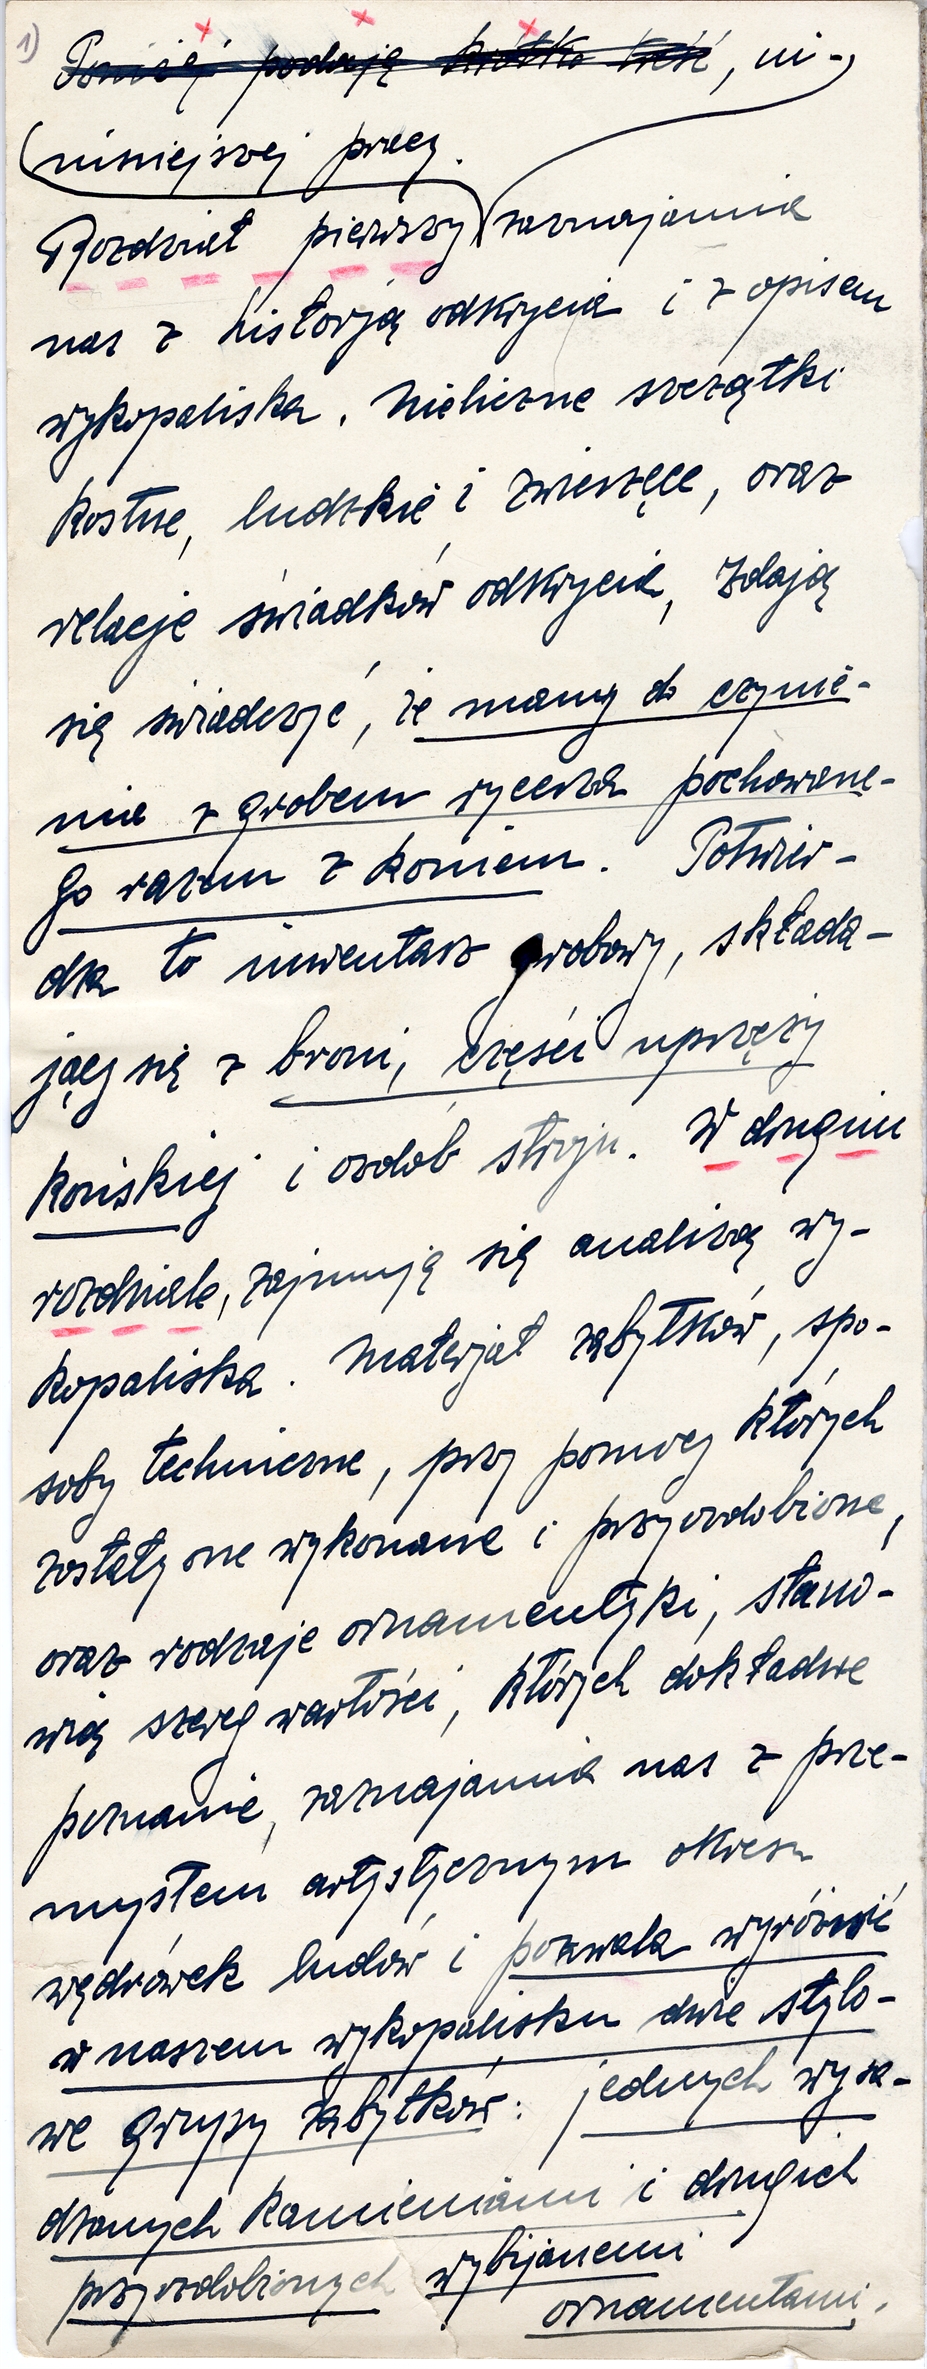 1)
Poniżej podaję krótko treść, ni-
niniejszej pracy.
Rozdział pierwszy zaznajamia
nas z historją odkrycia i z opisem
wykopaliska. Nieliczne szczątki
kostne, ludzkie i zwierzęce, oraz
relacje świadków odkrycia, zdają
się świadczyć, że mamy do czynie-
nia z grobem rycerza pochowane-
go razem z koniem. Potwier-
dza to inwentarz grobowy, składa-
jący się z broni, części uprzęży
końskiej i ozdób stroju. W drugim
rozdziale, zajmuję się analizą wy-
kopaliska. Materjał zabytków, spo-
soby techniczne, przy pomocy których
zostały one wykonane i przyozdobione,
oraz rodzaje ornamentyki, stano-
wią szereg wartości, których dokładne
poznanie, zaznajamia nas z prze-
mysłem artystycznym okresu
wędrówek ludów i pozwala wyróżnić
w naszem wykopalisku dwie stylo-
we grupy zabytków: jednych wysa-
dzanych kamieniami i drugich
przyozdobionych wybijanemi
ornamentami.